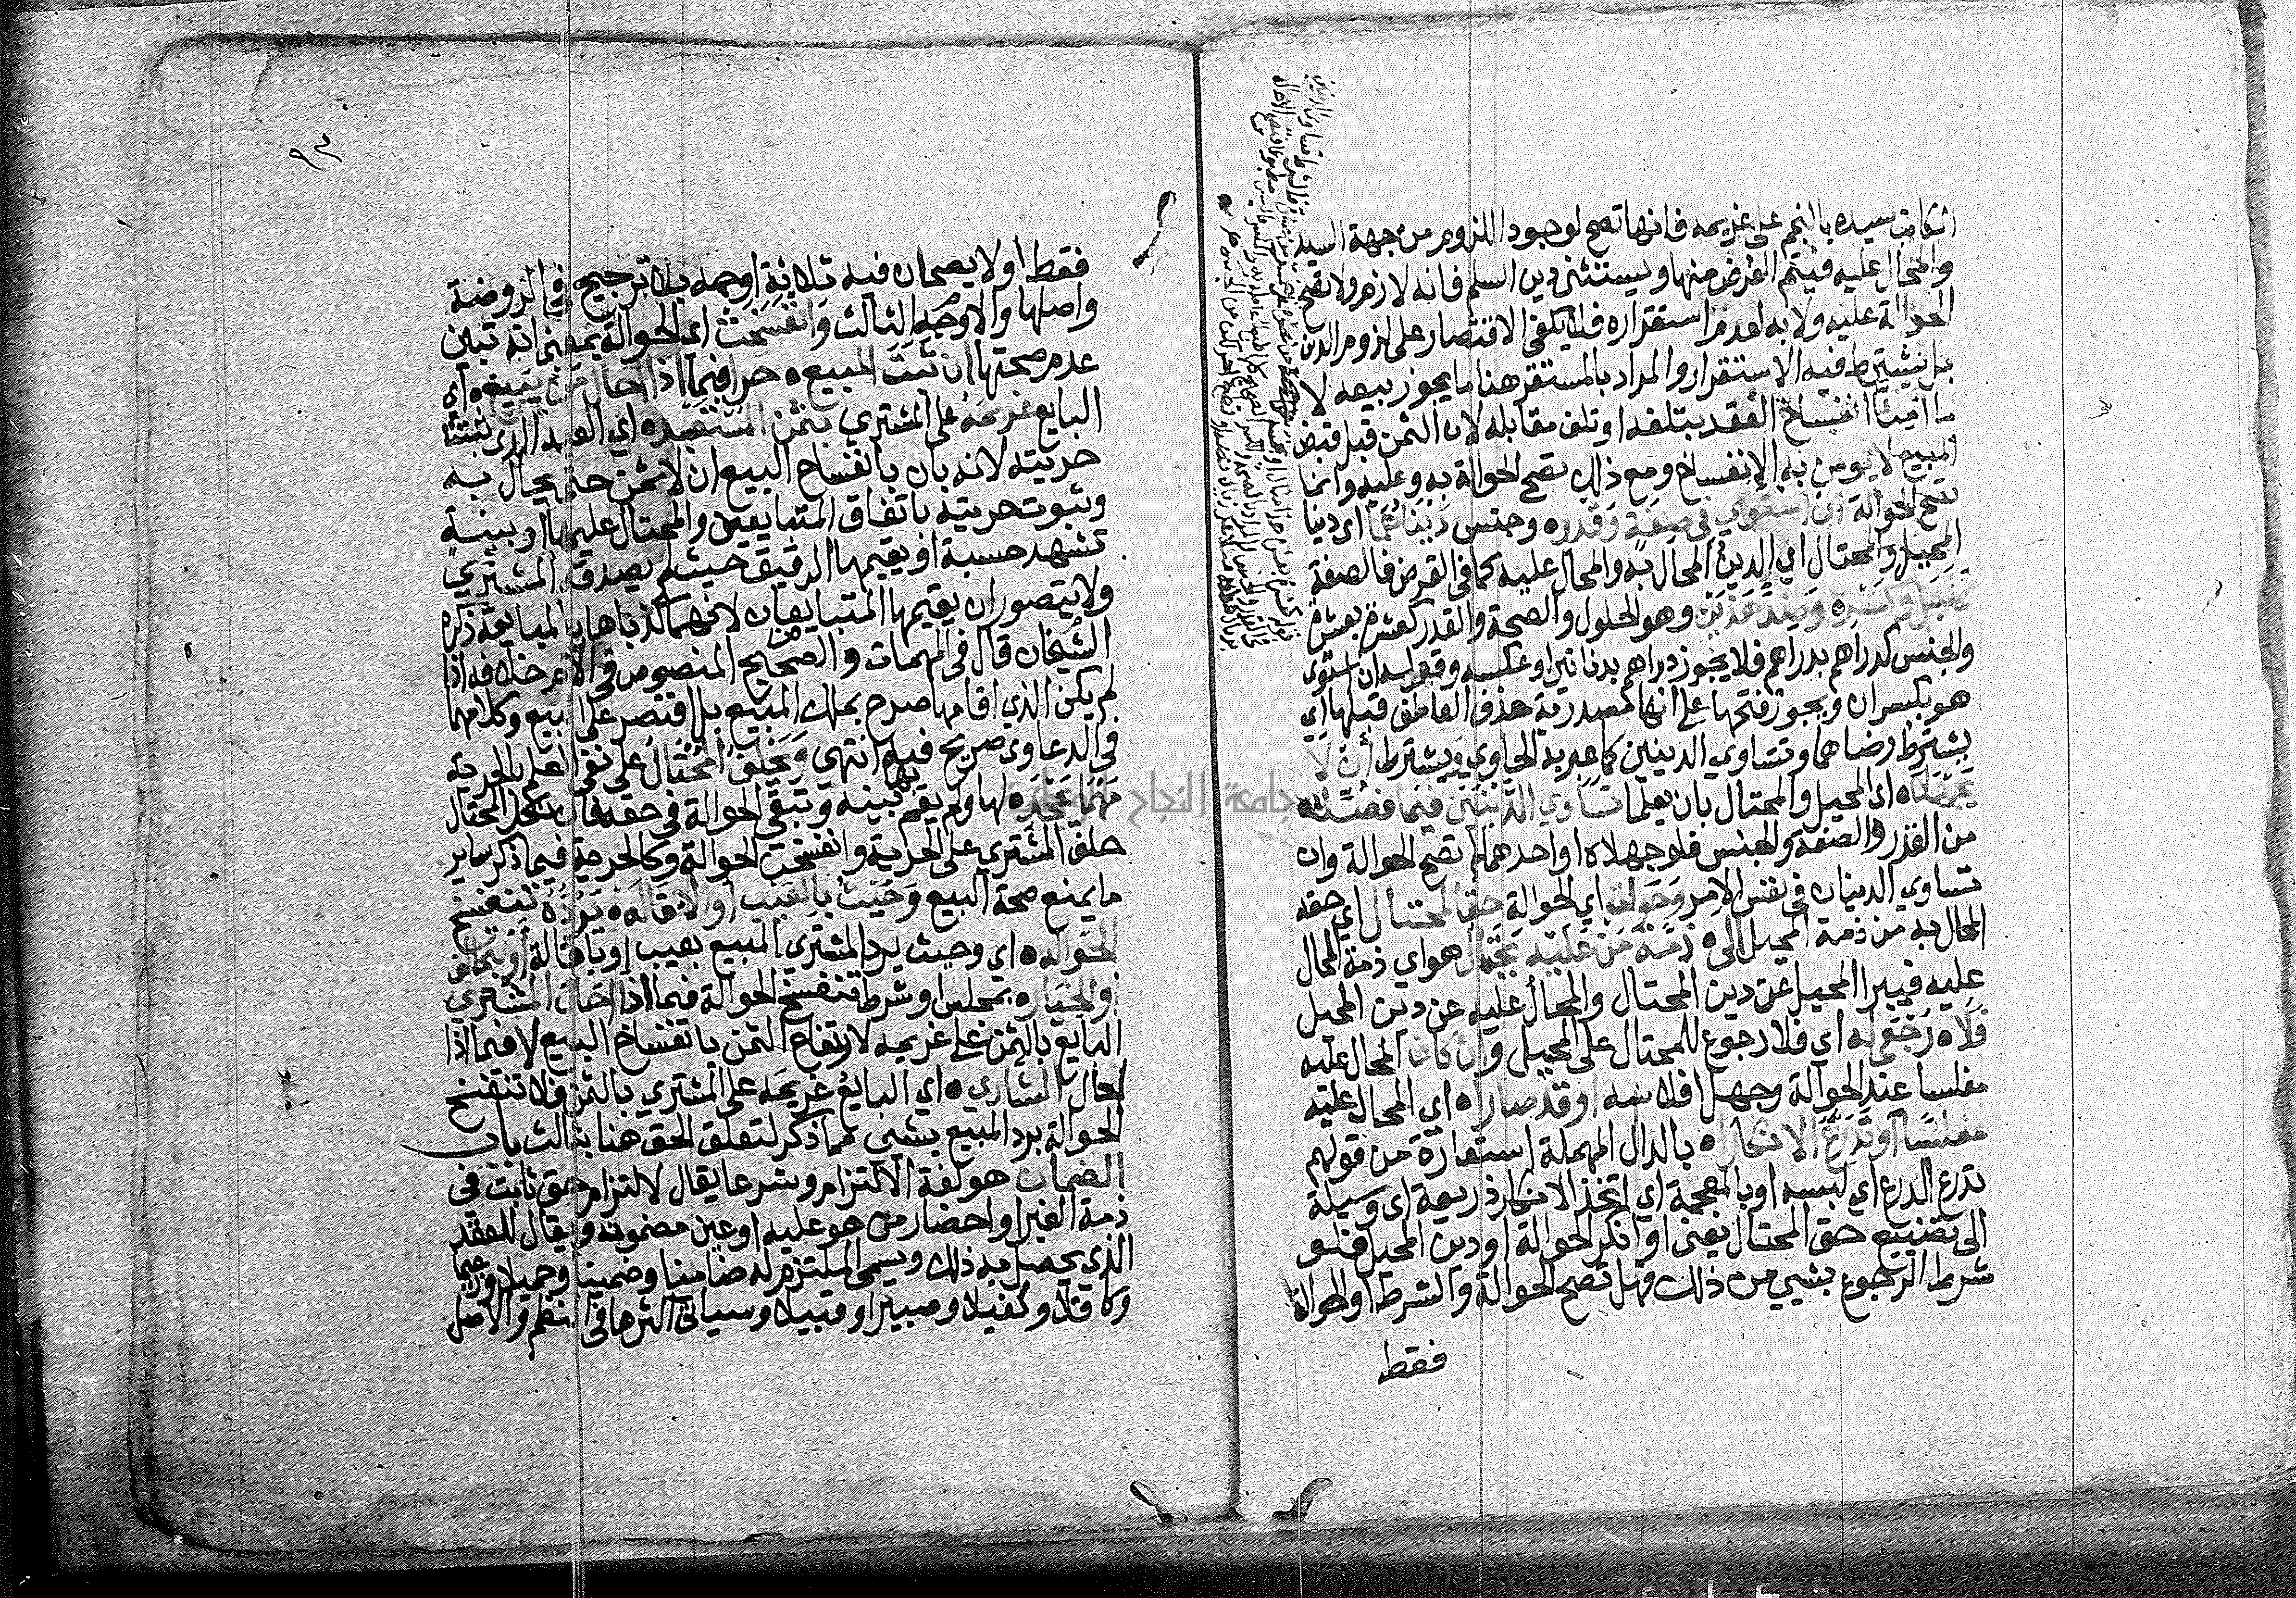 المكاتب سيده بالنجم على غريمه فانها تصح لوجود اللزوم من جهة السيد
والمحال عليه فيتم الغرض منها ويستثنى دين السلم فانه لازم ولا تصح
الحوالة عليه ولا به لعدم استقراره فلا يكفي الاقتصار على لزوم الدين
بل يشترط فيه الاستقرار والمراد بالمستقر هنا ما يجوز بيعه لا
ما امن انفساخ العقد بتلفه او تلف مقابله لان الثمن قبل قبض
المبيع لا يومن به الانفساخ ومع ذلك تصح الحوالة به وعليه وانما
تصح الحوالة ان استوى في صفة وقدره وجنس ديناهما اي دينا
المحيل والمحتال اي الدين المحال به والمحال عليه كما في القرض فالصفة
كاجل وكسره وضد هذين وهو الحلول والصحة والقدر كعشرة بعشرة
والجنس كدراهم بدراهم فلا يجوز دراهم بدنانير او عكسه وقوله ان استوى
هو بكسر ان ويجوز فتحها على انها مصدرية حذف العاطف قبلها اي
يشترط رضاهما وتساوي الدينين كما عبر به الحاوي ويشترط ان لا
يجهلاه اي المحيل والمحتال بان يعلما تساوي الدينين فيما فصله
من القدر والصفة والجنس فلو جهلاه او احدهما لم تصح الحوالة وان
تساوي الدينان في نفس الامر وحولت اي الحوالة حق المحتال اي حقه
المحال به من ذمة المحيل الى ذمة من عليه يحتال هو اي ذمة المحال
عليه فيبرا المحيل عن دين المحتال والمحال عليه عن دين المحيل
فلا رجع له اي فلا رجوع للمحتال على المحيل وان كان المحال عليه
مفلسا عند الحوالة وجهل افلاسه او قد صار اي المحال عليه
مفلسا او تدرع الانكار بالدال المهملة استعارة من قولهم
تدرع الدرع اي لبسه او بالمعجمة اي اتخذ الانكار ذريعة اي وسيلة
الى تضييع حق المحتال يعني او انكر الحوالة او دين المحيل فلو
شرط الرجوع بشيي من ذلك فهل تصح الحوالة والشرط او الحوالة
فقط
٩٣
فقط او لا يصحان فيه ثلاثة اوجه بلا ترجيح في الروضة
واصلها والاوجه الثالث وانفسخت اي الحوالة بمعنى انه تبين
عدم صحتها ان ثبت المبيع حرا فيما اذا احال من يبيع اي
البايع غريمه على المشتري بثمن العبد اي العبد الذي ثبتت
حريته لانه بان بانفساخ البيع ان لا ثمن حتى يحال به
وثبوت حريته باتفاق المتبايعين والمحتال عليها او ببينة
تشهد حسبة او يقيمها الرقيق حيث لم يصدقه المشتري
ولا يتصور ان يقيمها المتبايعان لانهما كذباها بالمبايعة ذكره
الشيخان قال في المهمات والصحيح المنصوص في الام خلافه اذا
لم يكن الذي اقامها صرح بملك المبيع بل اقتصر على البيع وكلامهما
في الدعاوى صريح فيه انتهى ويحلف المحتال على نفي العلم بالحرية
مهما يجحده لها ولم يقم بها بينه وتبقى الحوالة في حقه فان نكل المحتال
حلف المشتري على الحرية وانفسخت الحوالة وكالحرية فيما ذكر ساير
ما يمنع صحة البيع وحيث بالعيب او الاقاله يرده تنفسخ
الحواله اي وحيث يرد المشتري المبيع بعيب او باقالة او بتحالف
او الخيار بمجلس او شرط تنفسخ الحوالة فيما اذا احال المشتري
البايع بالثمن على غريمه لارتفاع الثمن بانفساخ البيع لا فيما اذا
احال الشاري اي البايع غريمه على المشتري بالثمن فلا تنفسخ
الحوالة برد المبيع بشيى مما ذكر لتعلق الحق هنا بثالث باب
الضمان هو لغة الالتزام وشرعا يقال لالتزام حق ثابت في
ذمة الغير او احضار من هو عليه او عين مضمونه ويقال للعقد
الذي يحصل به ذلك ويسمى الملتزم له ضامنا وضمينا وحميلا وزعيما
وكافلا وكفيلا وصبيرا وقبيلا وسياتى اكثرها في النظم والاصل